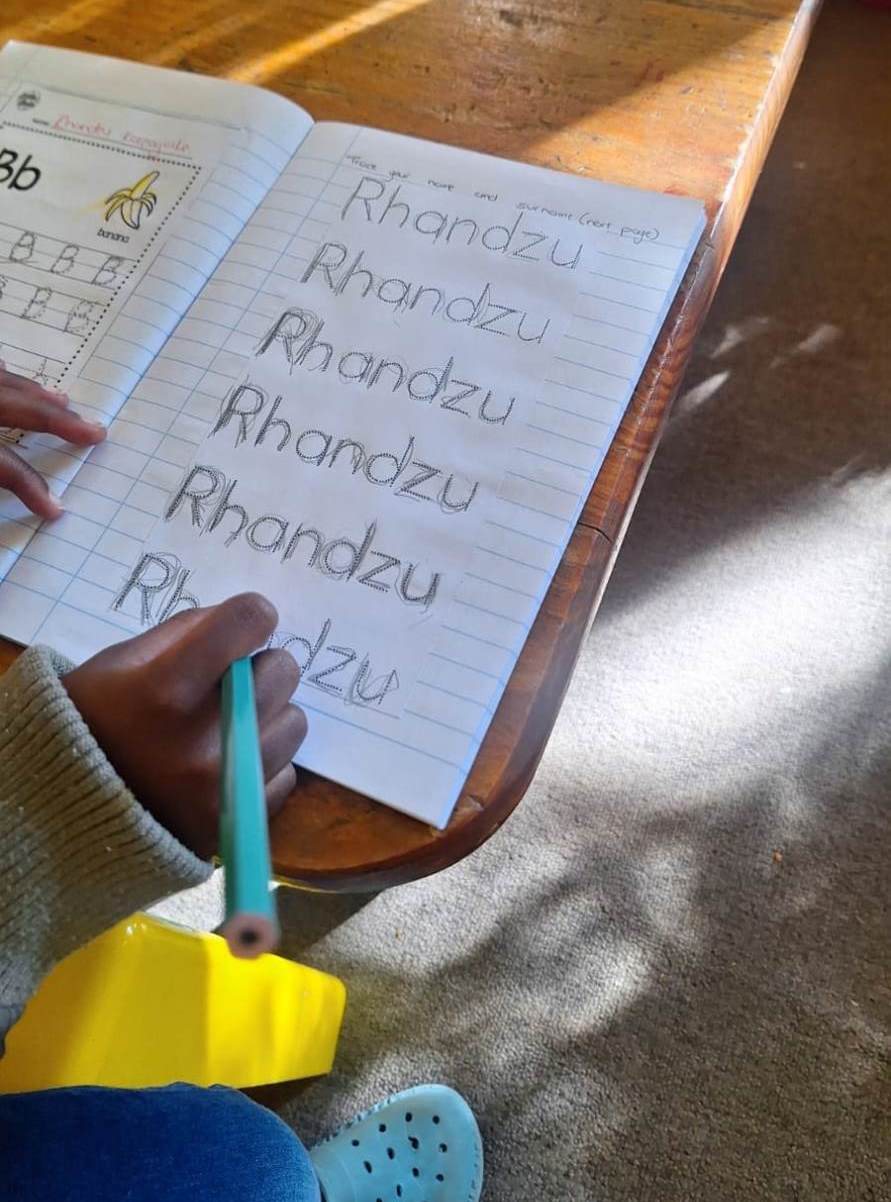 Rhandzu
Bb
banana
B B B
B B B
A
Trace your name and surname (next page)
Rhandzu
Rhandzu
Rhandzu
Rhandzu
Rhandzu
Rh dzu